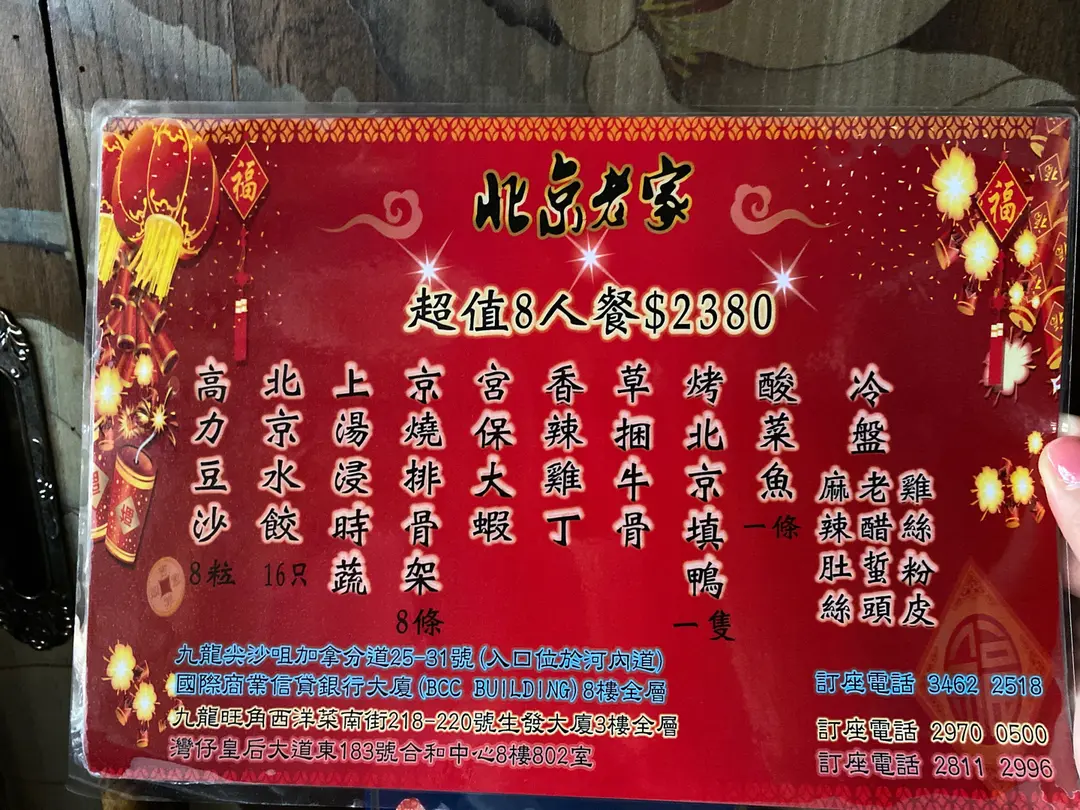 北京老家
超值8人餐$2380
冷盤
雞絲粉皮
老醋蜇頭
麻辣肚絲
酸菜魚
一條
烤北京填鴨
一隻
草捆牛骨
香辣雞丁
宮保大蝦
京燒排骨架
8條
上湯浸時蔬
北京水餃
16只
高力豆沙
8粒
九龍尖沙咀加拿分道25-31號(入口位於河內道)
國際商業信貸銀行大廈(BCC BUILDING)8樓全層
訂座電話 3462 2518
九龍旺角西洋菜南街218-220號生發大廈3樓全層
訂座電話 2970 0500
灣仔皇后大道東183號合和中心8樓802室
訂座電話 2811 2996
福
福